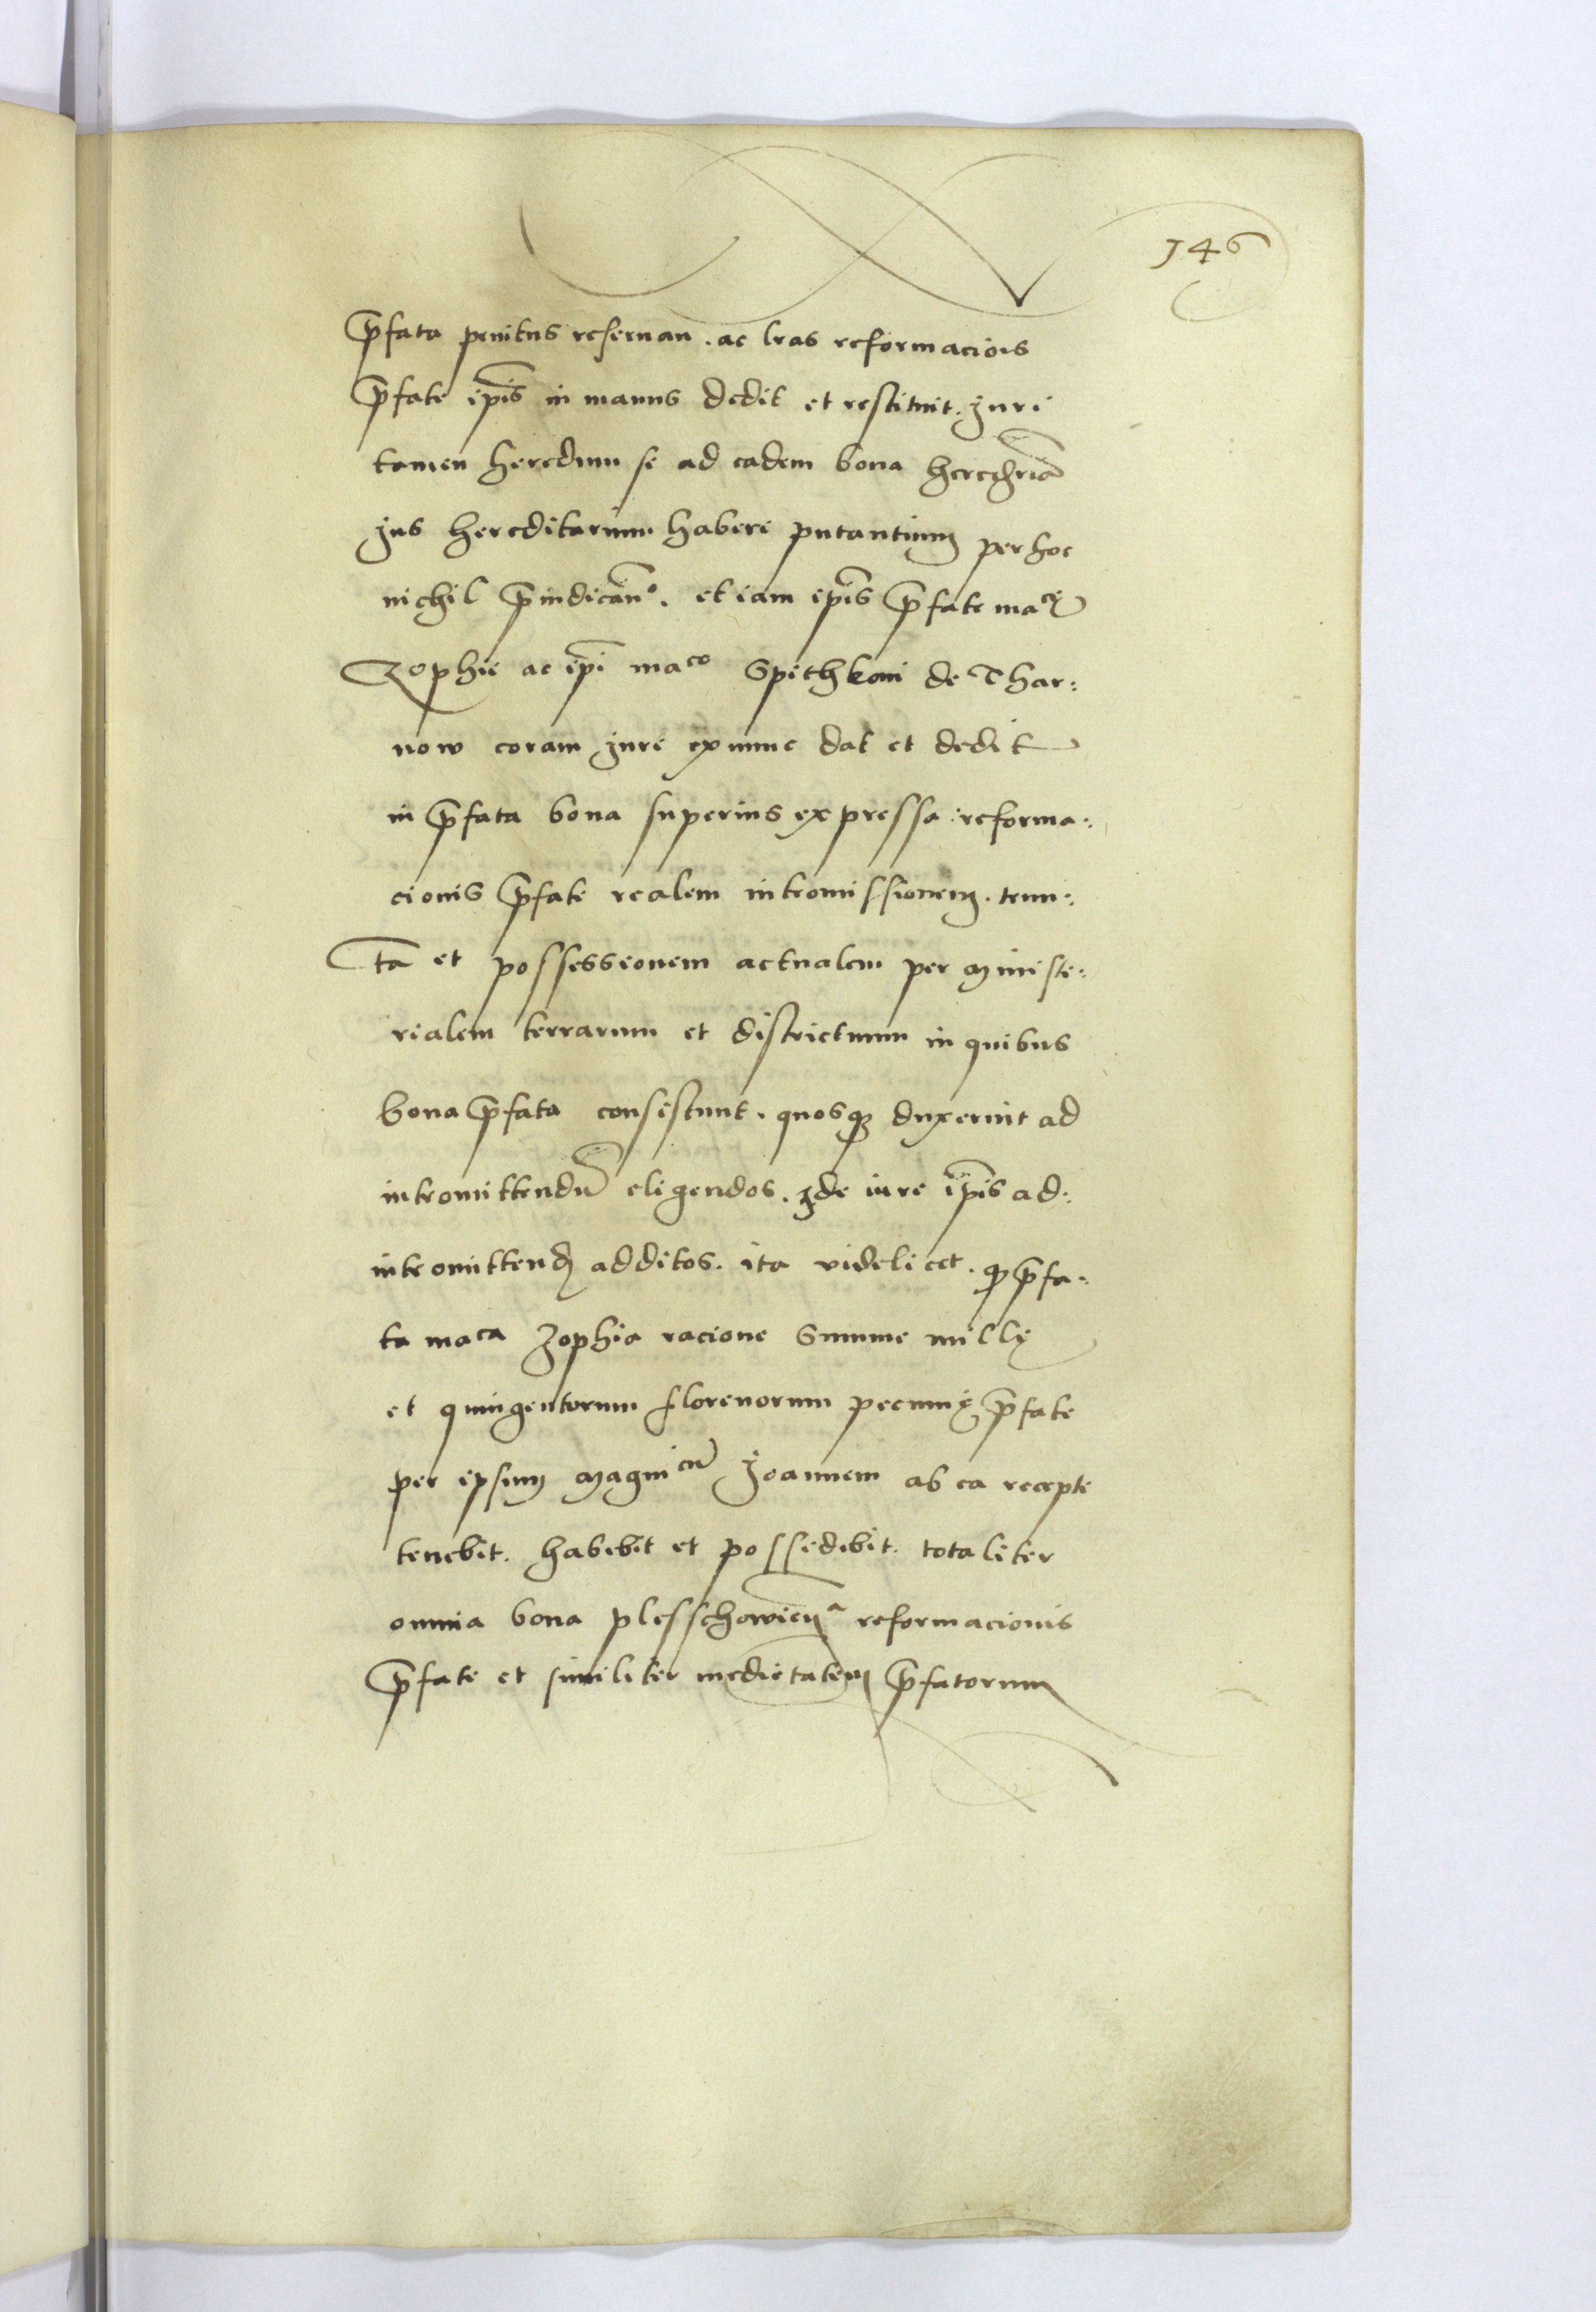 146
p̄fata penitus reseruan. ac l̄ras reformaciōis
p̄fate ip̄is in manus dedit et restituit. Iure
tamen heredum se ad eadem bona
Ius hereditarium habere putantium per hoc
nichil p̄iudicān°. et iam ip̄is p̄fate ma^ce
Zophie ac ip̄i ma^co Spithkoni de Thar:
now coram Iure ex nunc dat et dedit
in p̄fata bona superius expressa reforma:
cionis p̄fate realem intromissionem. tenu:
tā et possessionem actualem per ministe:
rialem terrarum et districtuum in quibus
bona p̄fata consistunt. quosq3 duxerint ad
intromittendū eligendos. de iure ip̄is ad:
intromittend additos. ita videlicet. q p̄fa:
ta ma^ca Zophia racione Summe mille
et quingentorum florenorum pecunie p̄fate
per ipsum Magni^cū Joannem ab ea recepte
tenebit. habebit et possidebit. totaliter
omnia bona plesschowien^a reformacionis
p̄fate et similiter medietatem p̄fatorum